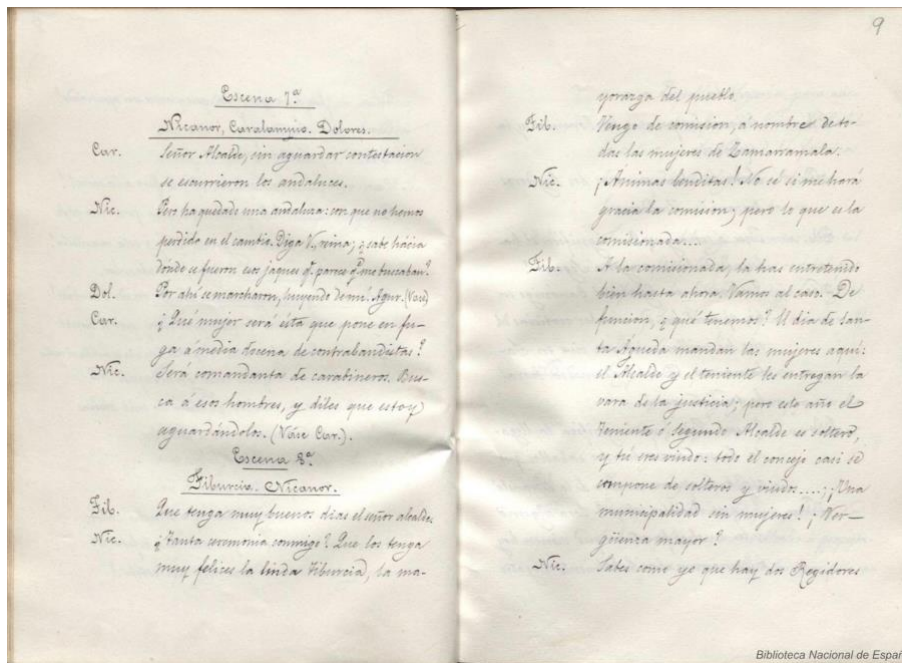 Escena 7ª
Nicanor, Caralampio. Dolores.
Car. Señor Alcalde, sin aguardar contestacion
se escurrieron los andaluces.
Nic. Pero ha quedado una andaluza: con que no hemos
perdido en el cambio. Diga V., reina; ¿sabe hácia
dónde se fueron esos jaques q. parece q. me buscaban?
Dol. Por ahí se marcharon, huyendo de mí. Agur. (Vase)
Car. ¿Qué mujer será ésta que pone en fu-
ga á media docena de contrabandistas?
Nic. Será comandanta de carabineros. Bus-
ca á esos hombres, y diles que estoy
aguardándolos. (Váse Car.).
Escena 8ª
Tiburcia. Nicanor.
Tib. Que tenga muy buenos dias el señor alcalde.
Nic. ¿Tanta ceremonia conmigo? Que los tenga
muy felices la linda Tiburcia, la ma-
9
yorazga del pueblo.
Tib. Vengo de comision, á nombre de to-
das las mujeres de Zamarramala.
Nic. ¡Ánimas benditas! No sé si me hará
gracia la comision; pero lo que es la
comisionada...
Tib. A la comisionada, la has entretenido
bien hasta ahora. Vamos al caso. De
funcion, ¿qué tenemos? El dia de San-
ta Águeda mandan las mujeres aquí:
el Alcalde y el teniente les entregan la
vara de la justicia; pero este año el
teniente ó segundo Alcalde es soltero,
y tú eres viudo: todo el concejo casi se
compone de solteros y viudos....; ¡Una
municipalidad sin mujeres! ¡Ver-
güenza mayor?
Nic. Sabes como yo que hay dos Regidores
Biblioteca Nacional de Españ